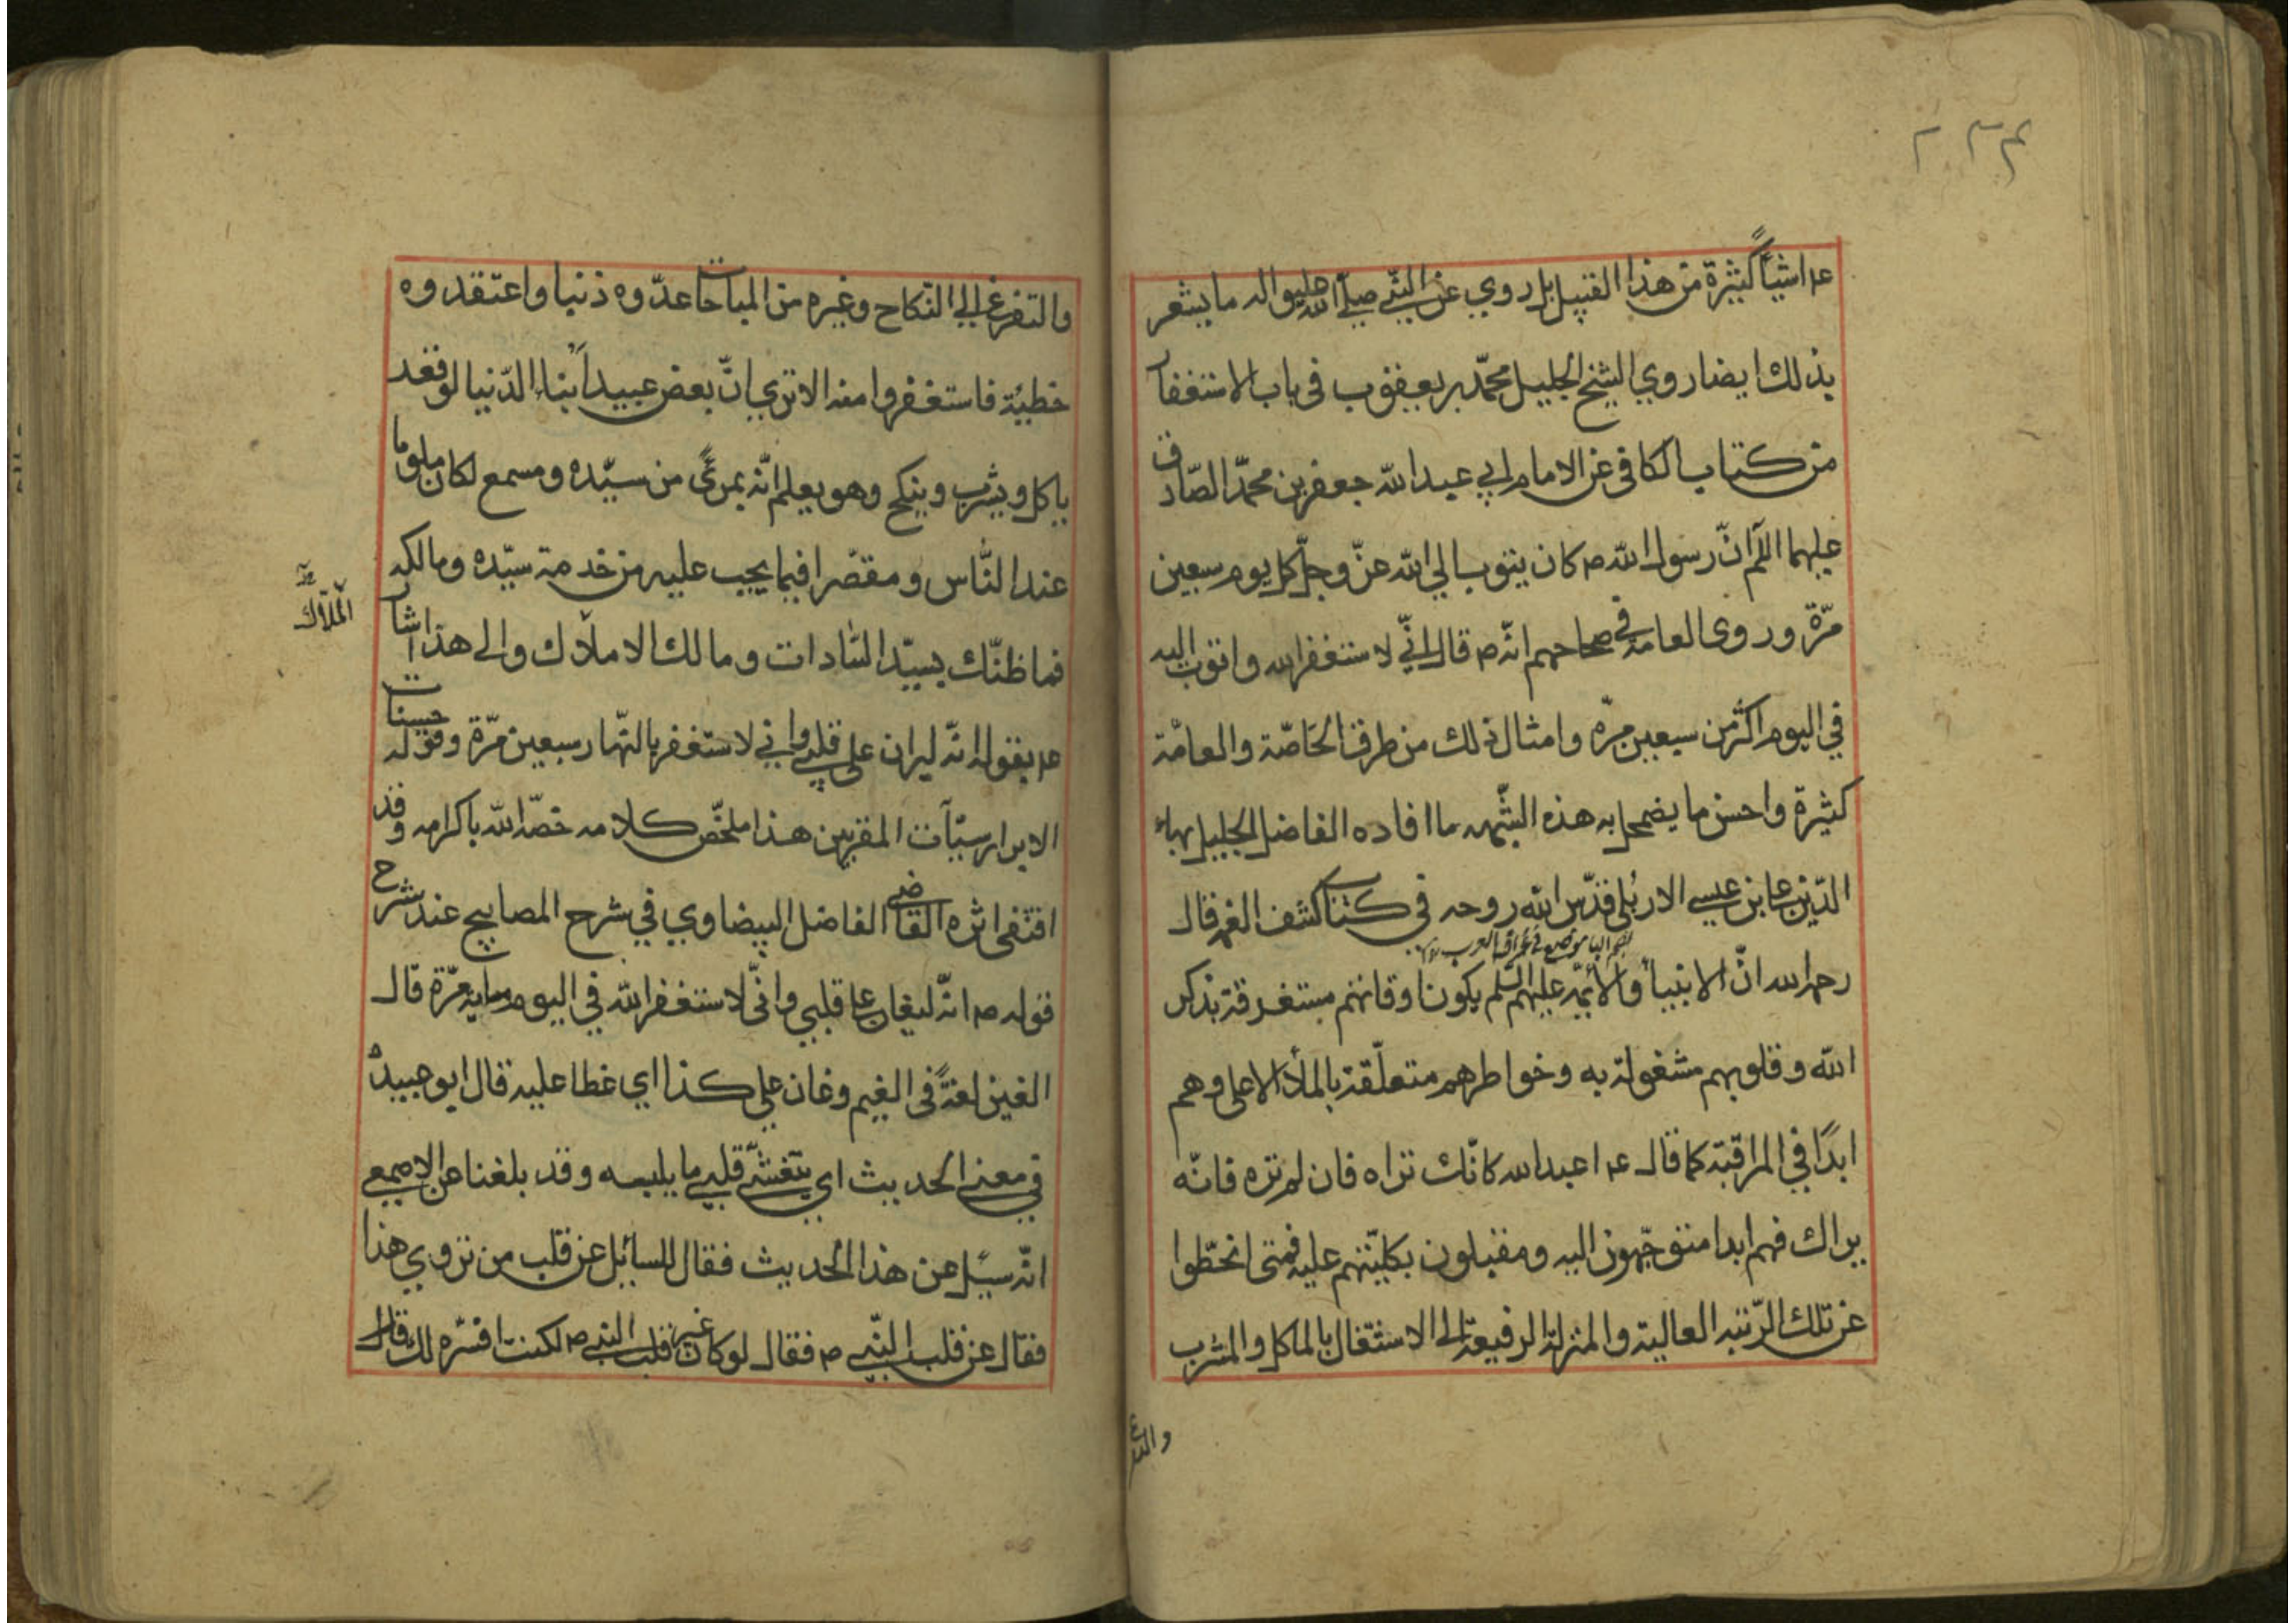 عم اشياً كثيرة من هذا القبيل بل روي عن النبّي صلّي الله عليه واله ما يشعر
بذلك ايضا روي الشيخ الجليل محمّد بن يعقوب في باب الاستغفار
من كتاب الكافي عن الامام ابي عبد الله جعفر بن محمّد الصّادق
عليهما اللّم انّ رسول الله ص كان يتوب الي الله عزّ وجلّ كل يوم سبعين
مرّة وروى العامة في صحاحهم انّه ص قال انّي لاستغفر الله واتوب اليه
في اليوم اكثر من سبعين مرّة وامثال ذلك من طرق الخاصّة والعامّة
كثيرة واحسن ما يضمحل به هذه الشّبهه ما افاده الفاضل الجليل بهاء
الدّين علي بن عيسي الاربُلي قدّس الله روحه في كتاب كشف الغمه قال
بضم البا موضع في عراق العرب
رحمه الله انّ الانبيأ والائمّه عليهم السّلم يكون اوقاتهم مستغرقة بذكر
الله وقلوبهم مشغولة به وخواطرهم متعلّقة بالملأ الاعلي وهم
ابدًا في المراقبة كما قال عم اعبد الله كانّك تراه فان لم تره فانّه
يراك فهم ابدا متوجّهون اليه ومقبلون بكليّتهم عليه فمتى انحطّوا
عن تلك الرّتبه العالية والمنزلة الرفيعة الي الاشتغال بالماكل والمشرب
والتفرغ
والتفرغ الي النّكاح وغيره من المباحات عدّوه ذنبا واعتقدوه
خطيّة فاستغفروا منه الا تري انّ بعض عبيد ابنأ الدّنيا لو قعد
ياكل ويشرب وينكح وهو يعلم انّه بمرئً من سيّده ومسمع لكان ملوما
عند النّاس ومقصّرا فيما يجب عليه من خدمة سيّده ومالكه
فما ظنّك بسيّد السّادات ومالك الاملاك والى هذا اشار
المُلّاك
عم بقوله انّه ليران على قلبي واني لاستغفر بالنّهار سبعين مرّة وقوله حسنات
الابرار سيّآت المقربين هذا ملخّص كلامه خصّه الله باكرامه وقد
اقتفى اثره القاضي الفاضل البيضاوي في شرح المصابيح عند شرح
قوله ص انّه ليغان علي قلبي وانّي لاستغفر الله في اليوم مايه مرّة قال
الغين لغةً في الغيم وغان علي كذا اي غطا عليه قال ابو عبيدة
في معني الحديث اي يتغشّي قلبي ما يلبسه وقد بلغنا عن الاصمعي
انّه سيُل عن هذا الحديث فقال للسايُل عن قلب من تروي هذا
فقال عن قلب النّبي ص فقال لو كان غير قلب النبي ص لكنت افسّره لك قال